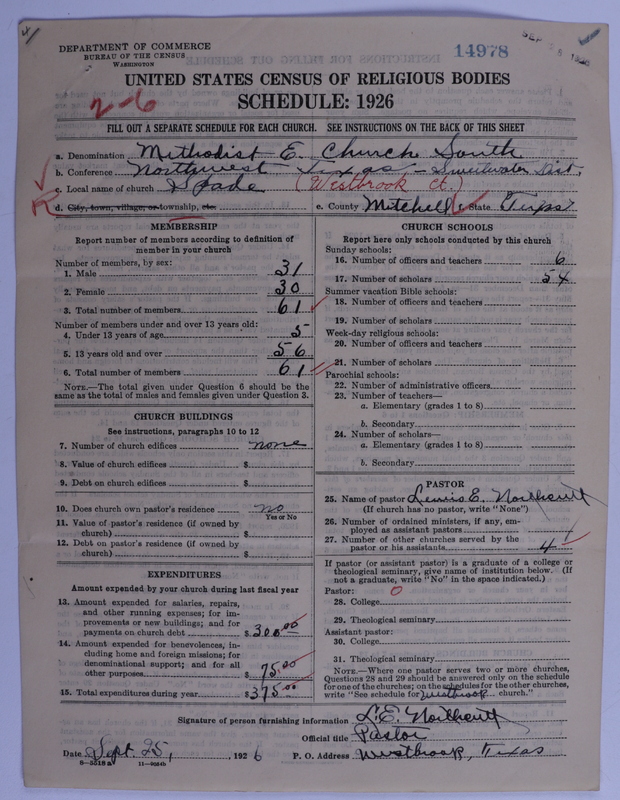 DEPARTMENT OF COMMERCE
BUREAU OF THE CENSUS
WASHINGTON
14978
SEP
1926
UNITED STATES CENSUS OF RELIGIOUS BODIES
2-6
SCHEDULE: 1926
FILL OUT A SEPARATE SCHEDULE FOR EACH CHURCH. SEE INSTRUCTIONS ON THE BACK OF THIS SHEET
a. Denomination Methodist E. Church South
b. Conference Northwest - Texas - Sweetwater Dist.
c. Local name of church Spade (Westbrook Ct.)
d. City, town, village, or township, etc. e. County Mitchell State Texas
MEMBERSHIP
Report number of members according to definition of
member in your church
Number of members, by sex:
1. Male 31
2. Female 30
3. Total number of members 61
Number of members under and over 13 years old:
4. Under 13 years of age 5
5. 13 years old and over 56
6. Total number of members 61
NOTE.—The total given under Question 6 should be the
same as the total of males and females given under Question 3.
CHURCH BUILDINGS
See instructions, paragraphs 10 to 12
7. Number of church edifices none
8. Value of church edifices $
9. Debt on church edifices $
10. Does church own pastor's residence no
Yes or No
11. Value of pastor's residence (if owned by
church) $
12. Debt on pastor's residence (if owned by
church) $
EXPENDITURES
Amount expended by your church during last fiscal year
13. Amount expended for salaries, repairs,
and other running expenses; for im-
provements or new buildings; and for
payments on church debt $ 300.00
14. Amount expended for benevolences, in-
cluding home and foreign missions; for
denominational support; and for all
other purposes $ 75.00
15. Total expenditures during year $ 375.00
CHURCH SCHOOLS
Report here only schools conducted by this church
Sunday schools:
16. Number of officers and teachers 6
17. Number of scholars 54
Summer vacation Bible schools:
18. Number of officers and teachers
19. Number of scholars
Week-day religious schools:
20. Number of officers and teachers
21. Number of scholars
Parochial schools:
22. Number of administrative officers
23. Number of teachers—
a. Elementary (grades 1 to 8)
b. Secondary
24. Number of scholars—
a. Elementary (grades 1 to 8)
b. Secondary
PASTOR
25. Name of pastor Lewis E. Northcutt
(If church has no pastor, write "None")
26. Number of ordained ministers, if any, em-
ployed as assistant pastors
27. Number of other churches served by the
pastor or his assistants 4
If pastor (or assistant pastor) is a graduate of a college or
theological seminary, give name of institution below. (If
not a graduate, write "No" in the space indicated.)
Pastor: 0
28. College
29. Theological seminary
Assistant pastor:
30. College
31. Theological seminary
NOTE.—Where one pastor serves two or more churches,
Questions 28 and 29 should be answered only on the schedule
for one of the churches; on the schedules for the other churches,
write "See schedule for Westbrook church."
Signature of person furnishing information L.E. Northcutt
Official title Pastor
Date Sept. 25, 1926 P. O. Address Westbrook, Texas
8—5518a 11—9084b